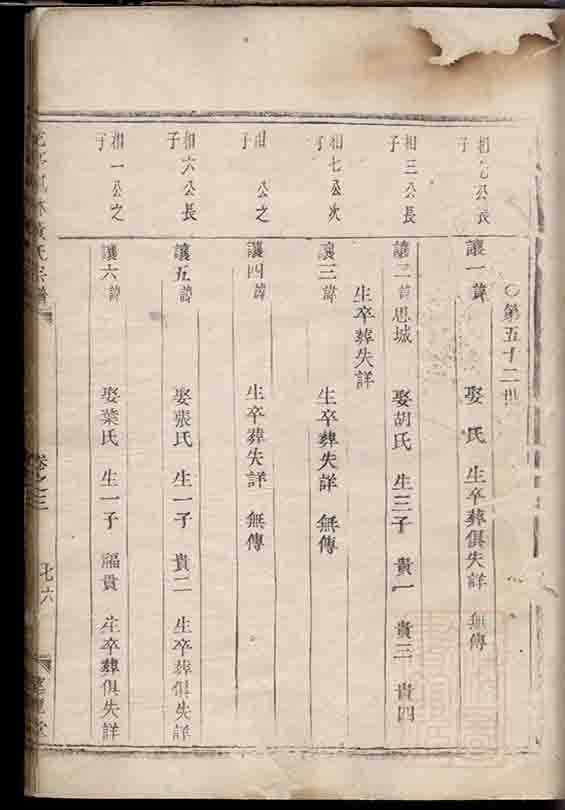 ○第五十二世
相七公長
子
讓一諱 娶 氏 生卒葬俱失詳 無傳
相三公長
子
讓二諱思城 娶胡氏 生三子 貴一 貴三 貴四
生卒葬失詳
相七公次
子
讓三諱 生卒葬失詳 無傳
相 公之
子
讓四諱 生卒葬失詳 無傳
相六公長
子
讓五諱 娶張氏 生一子 貴二 生卒葬俱失詳
相一公之
子
讓六諱 娶葉氏 生一子 福貴 生卒葬俱失詳
黃氏宗譜
卷之三
七六
堂